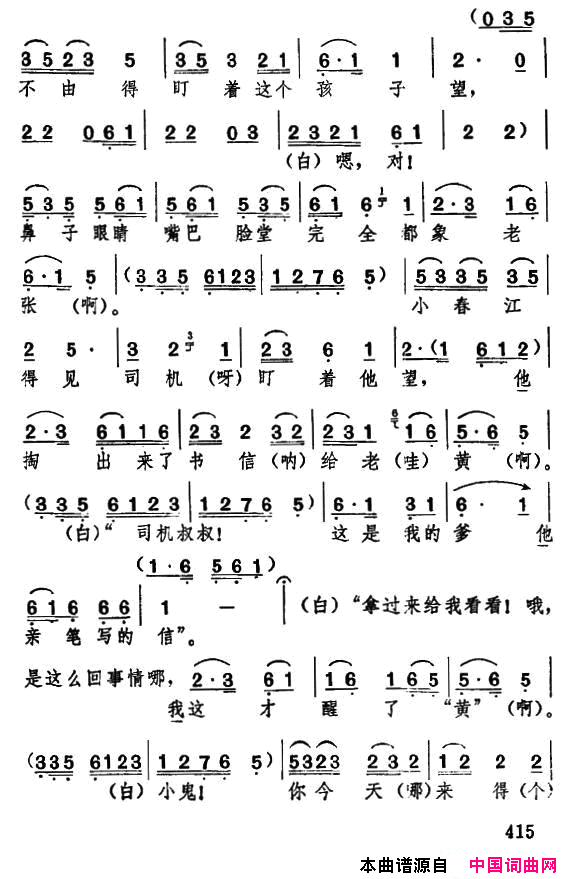 (0 3 5
3 5 2 3 5 | 3 5 3 2 1 | 6·1 1 | 2· 0 |
不由得盯着这个孩子望，
2 2 0 6 1 | 2 2 0 3 | 2 3 2 1 6 1 | 2 2) |
（白）嗯，对！
5 3 5 5 6 1 | 5 6 1 5 3 5 | 6 1 6 1 | 2·3 1 6 |
鼻子眼睛嘴巴脸堂完全都象老
6·1 5 | (3 3 5 6 1 2 3 | 1 2 7 6 5) | 5 3 3 5 3 5 |
张（啊）。小春江
2 5· | 3 2 3 1 | 2 3 6 1 | 2·(1 6 1 2) |
得见司机（呀）盯着他望，他
2·3 6 1 1 6 | 2 3 2 3 2 | 2 3 1 6 1 6 | 5·6 5 |
掏出来了书信（呐）给老（哇）黄（啊）。
(3 3 5 6 1 2 3 | 1 2 7 6 5) | 6·1 3 1 | 6· 1 |
（白）“司机叔叔！这是我的爹他
(1·6 5 6 1)
6 1 6 6 6 | 1 — | （白）“拿过来给我看看！哦，
亲笔写的信”。
是这么回事情哪， 2·3 6 1 | 1 6 1 6 5 | 5·6 5 |
我这才醒了“黄”（啊）。
(3 3 5 6 1 2 3 | 1 2 7 6 5) | 5 3 2 3 2 3 2 | 1 2 2 2 |
（白）小鬼！你今天（哪）来得（个）
415
本曲谱源自 中国词曲网